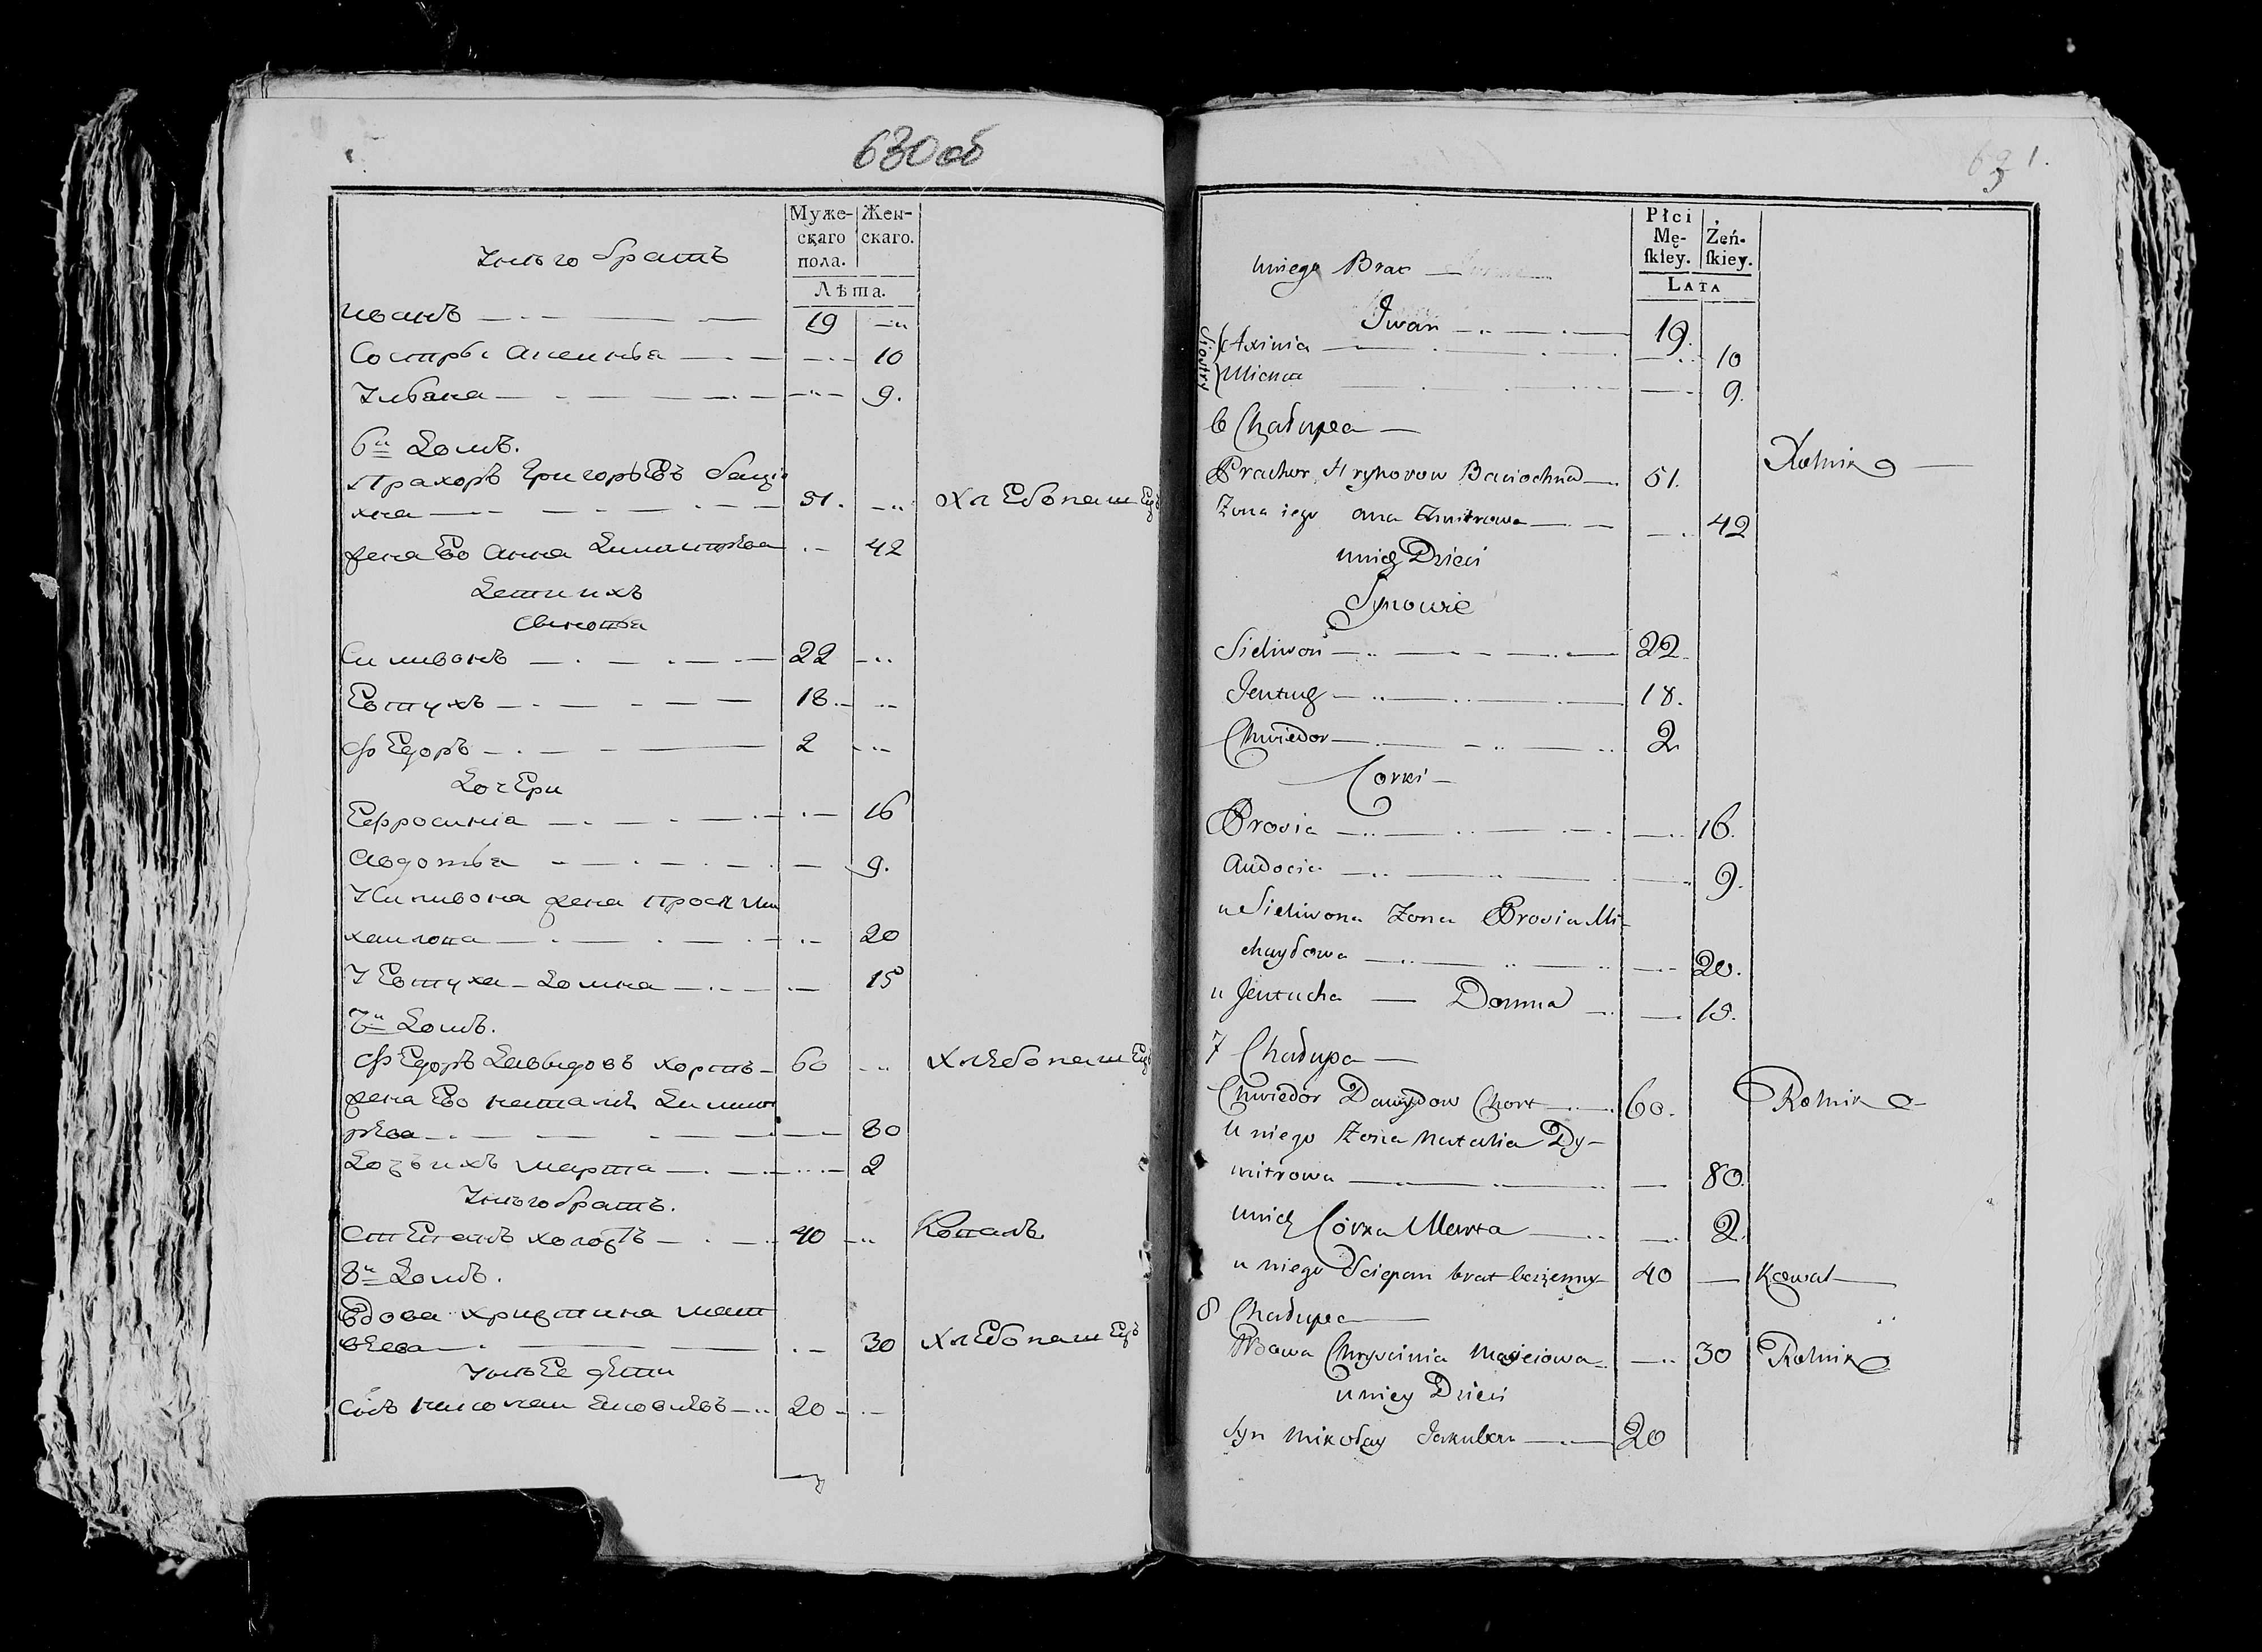 630 об
Муже-
скаго
пола.
Жен-
скаго.
Лѣта.
У него братъ
Иванъ 19
Сестры Аксинья 10
Ульяна 9.
6й Домъ.
Прахоръ Григорьевъ
51. Хлебопашец
жена Ево Анна Димитрева 42
Дети ихъ
Силивонъ 22
Евтухъ 18
Федоръ 2
Дочери
Ефросиния 16
Авдотья 9.
У Силивона жена
20
У Евтуха Домна 15
7й Домъ.
Федоръ Давыдовъ хортъ 60 Хлебопашец
жена Ево Наталя Димит
рева 80
Дочь ихъ Марта 2
У него братъ.
Степанъ холостъ 40 Коваль
8й Домъ.
Вдова христина мат
веева 30 Хлебопашецъ
У нее дети
сынъ николаи 20
631.
Płci
Mę-
skiey.
Żeń-
skiey.
LATA
u niego Brat
Iwan 19.
Siostry
Axinia 10
9.
6 Chałupa
Prachor Hryhorow 51. Rolnik
Zona iego Ana Dmitrowa 42
u nich Dzieci
Synowie
Sieliwon 22
Jeutuch 18.
Chwiedor 2
Corki
Prosia 16.
Audocia 9.
u Sieliwona Zona Prosia Mi-
chayłowa 20.
u Jeutucha Domna 15.
7 Chałupa
Chwiedor Dawydow Chort 60. Rolnik
U niego Zona Natalia Dy-
mitrowa 80.
u nich Córka Marta 2.
u niego Sciepan brat bezżenny 40 Kowal
8 Chałupa
Wdowa Chryscinia Maciejowa 30 Rolnik
u niey Dzieci
Syn Mikołay Jakubow 20